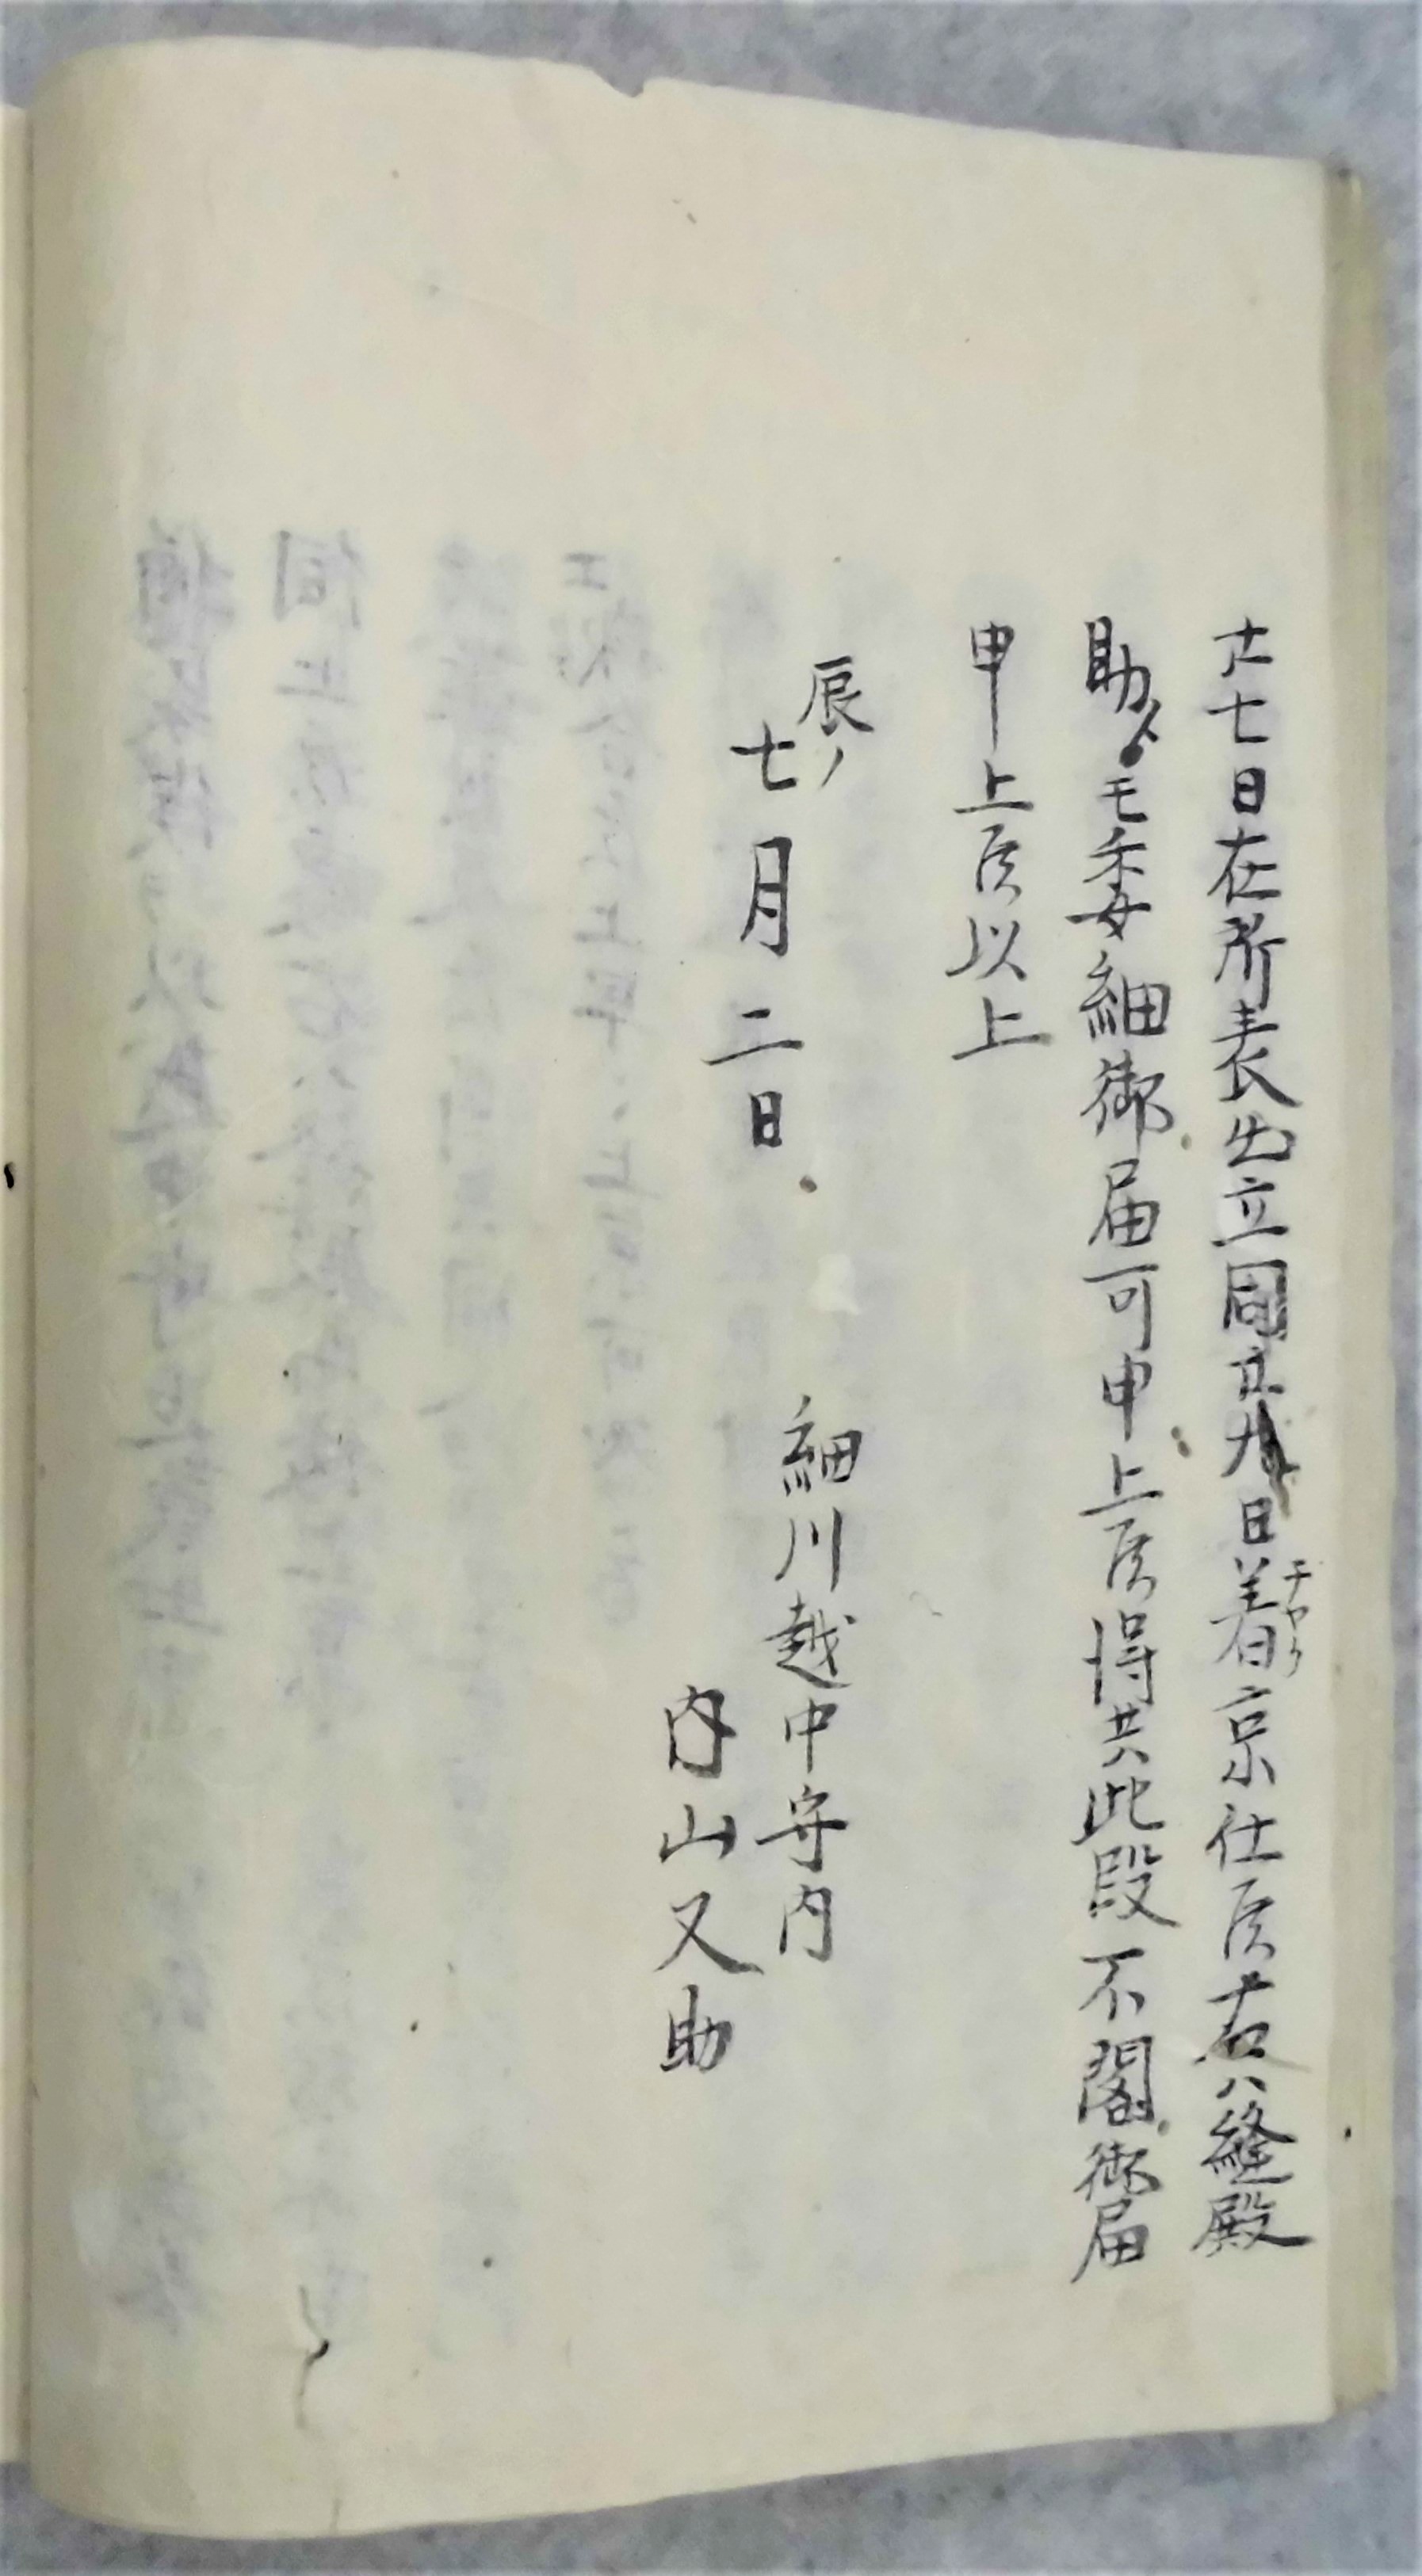 七日在所表出立同廿九日着京仕候右ハ縫殿
チヤク
助ゟモ委細御届可申上候得共此段不閣御届
申上候以上
辰ノ
七月二日
細川越中守内
内山又助